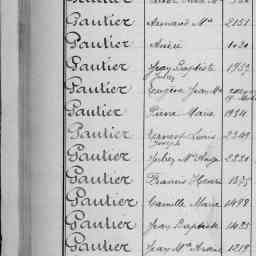 Gautier
Gautier Armand Mie 2151
Gautier Aimée 1020
Gautier Jean Baptiste 1952
Jules
Gautier Eugène Jean Mie
Gautier Pierre Marie 1934
Gautier Ernest Louis 2349
Joseph
Gautier Jules Mie Ange 2221
Gautier Francis Henri 1375
Gautier Camille Marie 1488
Gautier Jean Baptiste 1425
Gautier Jean Mie 1219